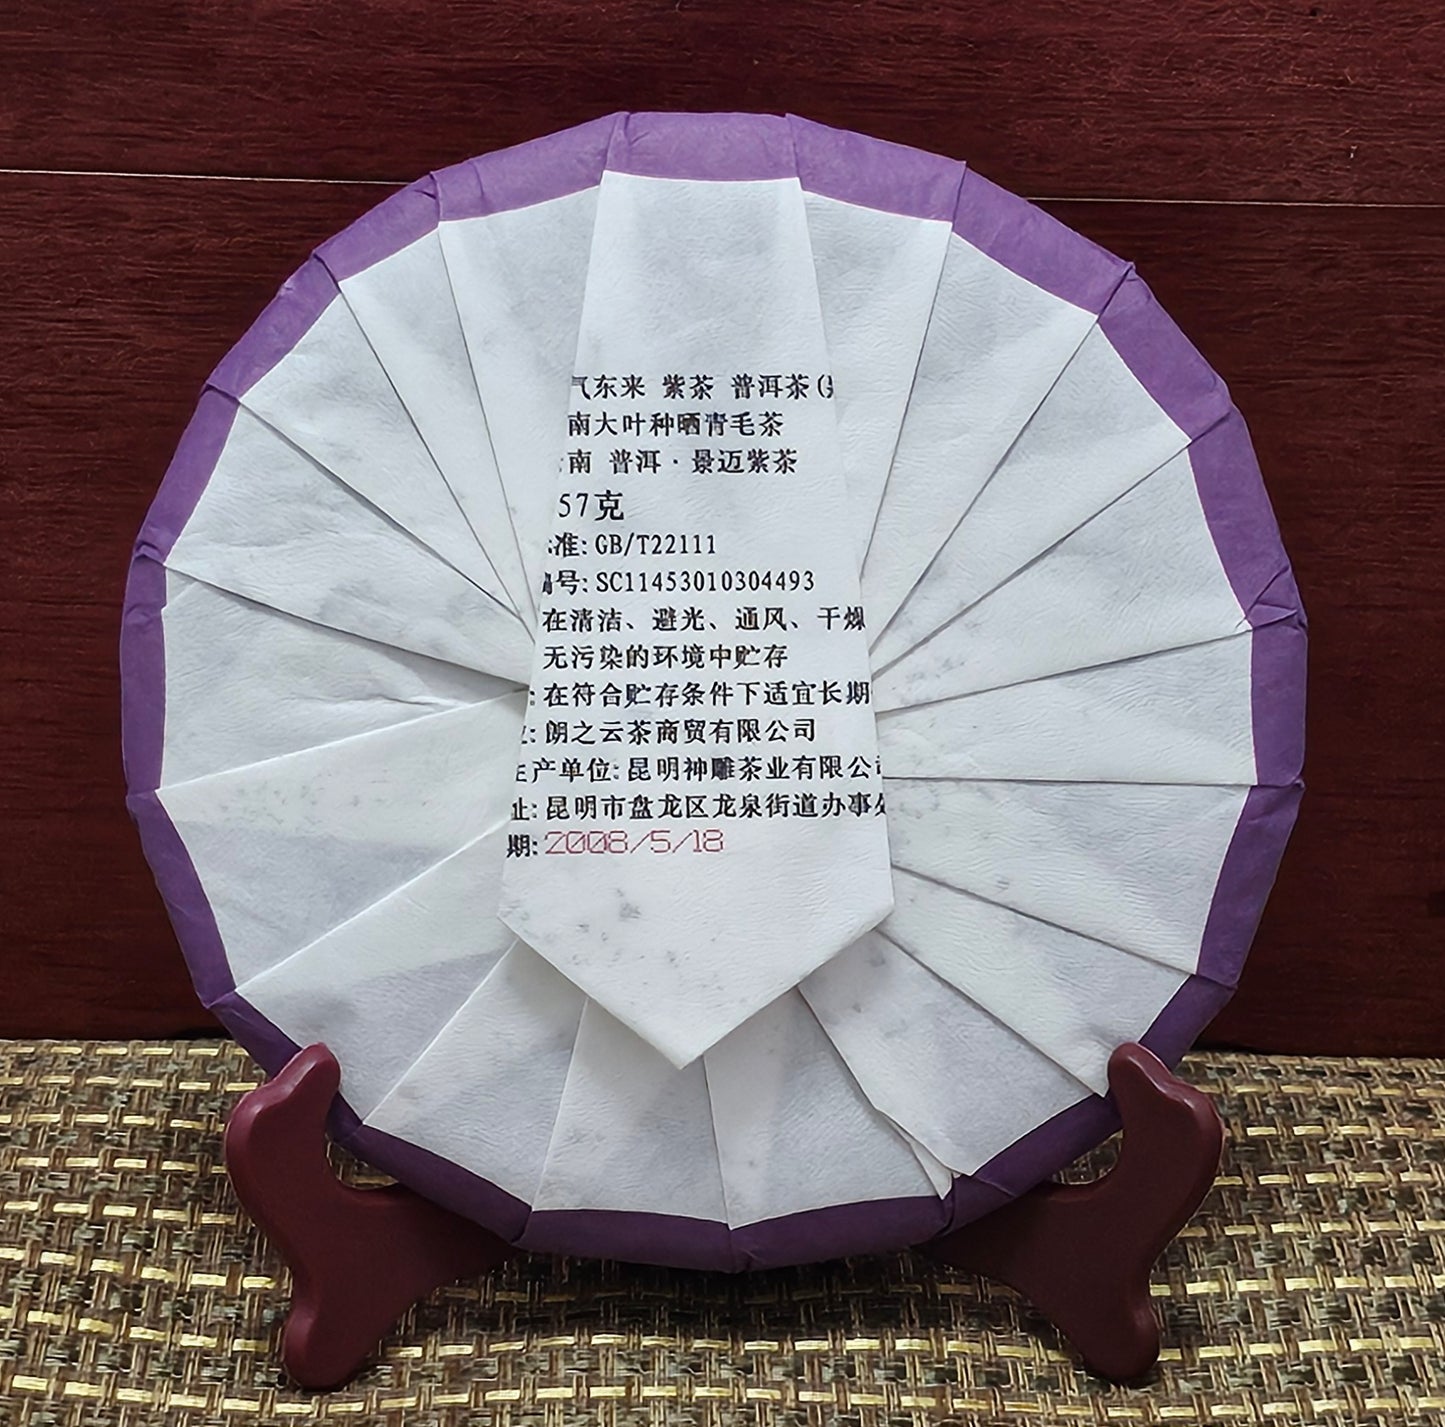 气东来 紫茶 普洱茶(
南大叶种晒青毛茶
南 普洱·景迈紫茶
57克
准: GB/T22111
号: SC11453010304493
在清洁、避光、通风、干燥
无污染的环境中贮存
: 在符合贮存条件下适宜长期
: 朗之云茶商贸有限公司
生产单位: 昆明神雕茶业有限公司
址: 昆明市盘龙区龙泉街道办事处
期: 2008/5/18